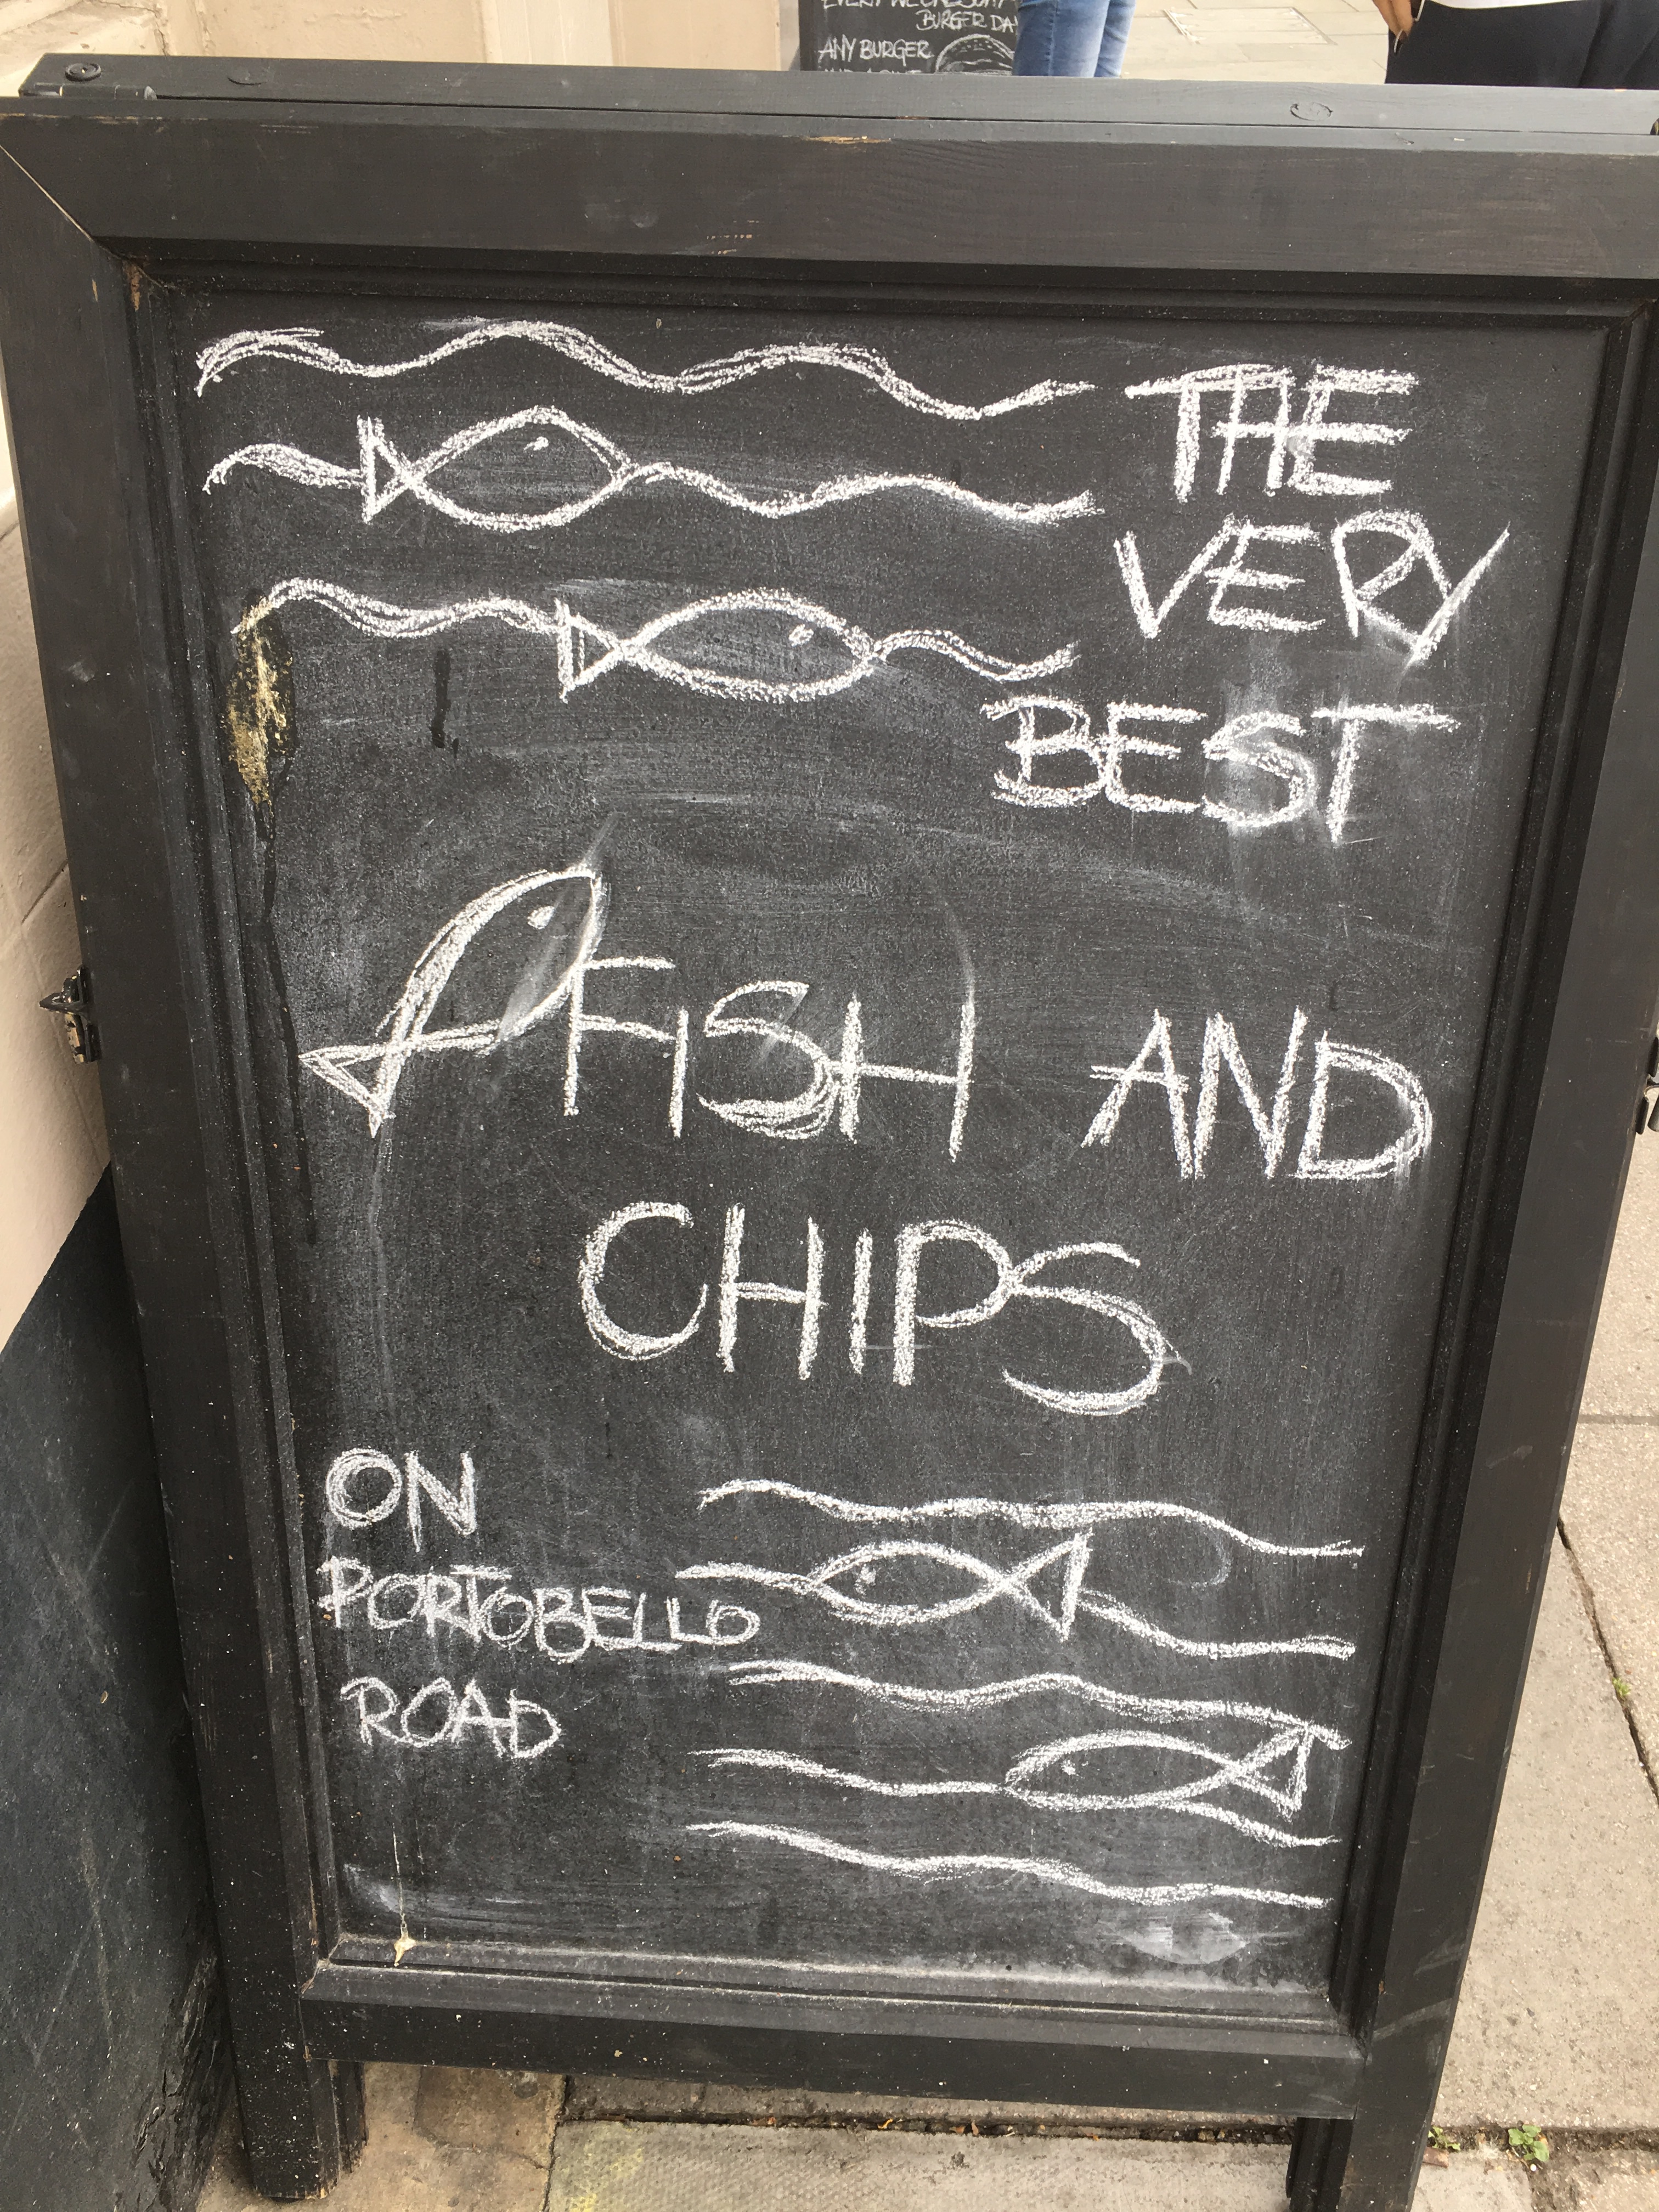 EVERY WEDNESDAY
BURGER DAY
ANY BURGER
THE
VERY
BEST
FISH AND
CHIPS
ON
PORTOBELLO
ROAD